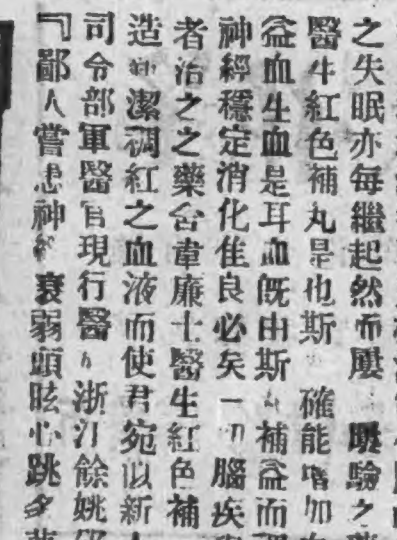 之失眠亦每繼起然而屢驗之
醫生紅色補丸是也斯確能增加
益血生血是耳血既由斯補益而
神經穩定消化佳良必矣一切腦疾
者治之之藥台韋廉士醫生紅色補
造純潔稠紅之血液而使君宛似新
司令部軍醫官現行醫於浙江餘姚
『鄙人嘗患神經衰弱頭眩心跳多